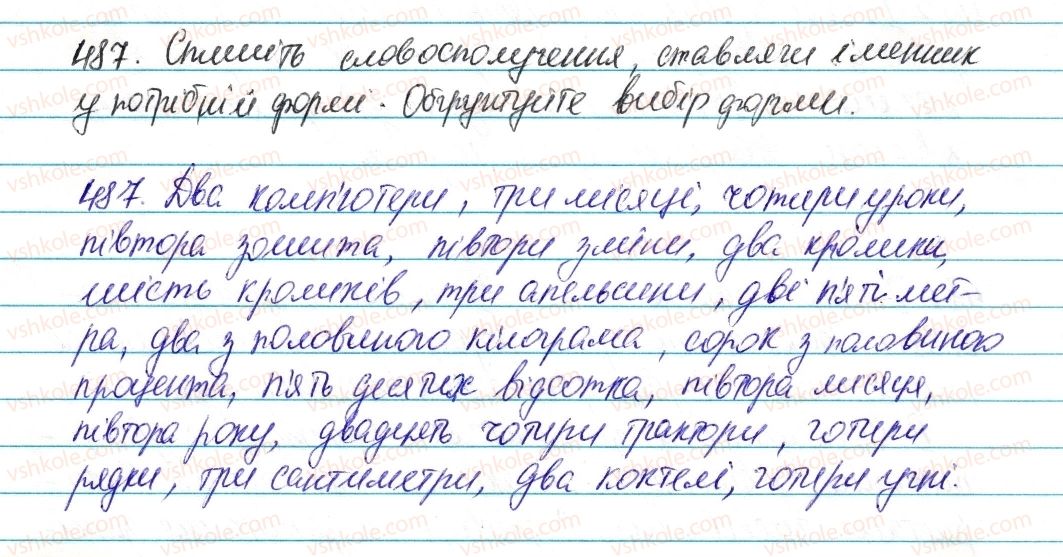 487. Спишіть словосполучення, ставлячи іменник
у потрібній формі. Обґрунтуйте вибір форми.
487. Два комп'ютери, три місяці, чотири уроки,
півтора зошита, півтори зміни, два кролики,
шість кроликів, три апельсини, дві п'яті мет-
ра, два з половиною кілограма, сорок з половиною
процента, п'ять десятих відсотка, півтора місяця,
півтора року, двадцять чотири трактори, чотири
рядки, три сантиметри, два коктелі, чотири учні.